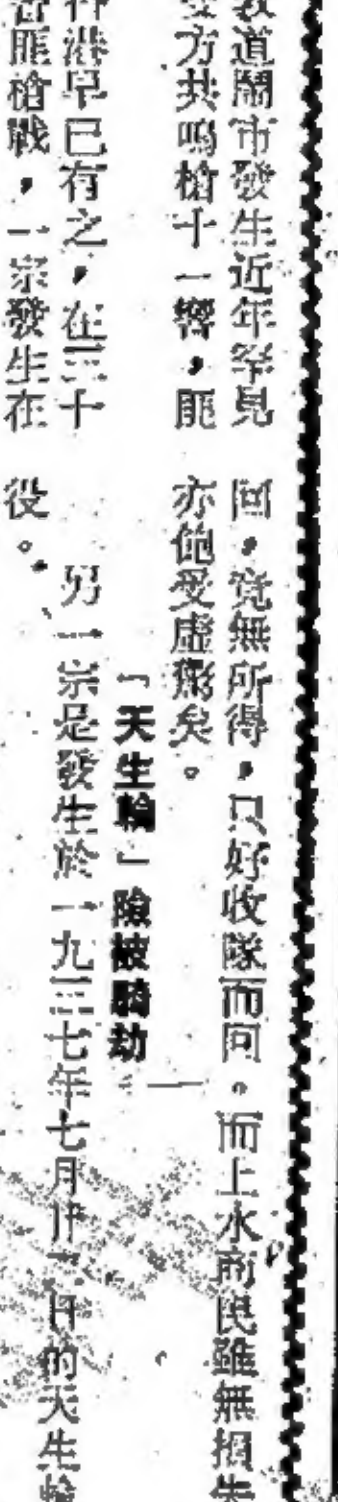 教道鬧市發生近年罕見
方共鳴槍十一響，匪
港早已有之，在三十
匪槍戰，一宗發生在
回，竟無所得，只好收隊而回。而上水商民雖無損失
亦飽受虛驚矣。
「天生輪」險被騎劫
另一宗是發生於一九三七年七月廿日的天生輪
役。